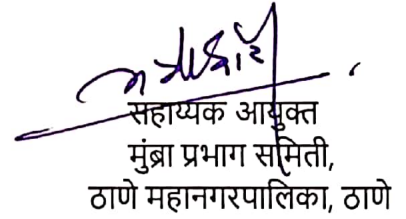 सहाय्यक आयुक्त
मुंब्रा प्रभाग समिती,
ठाणे महानगरपालिका, ठाणे